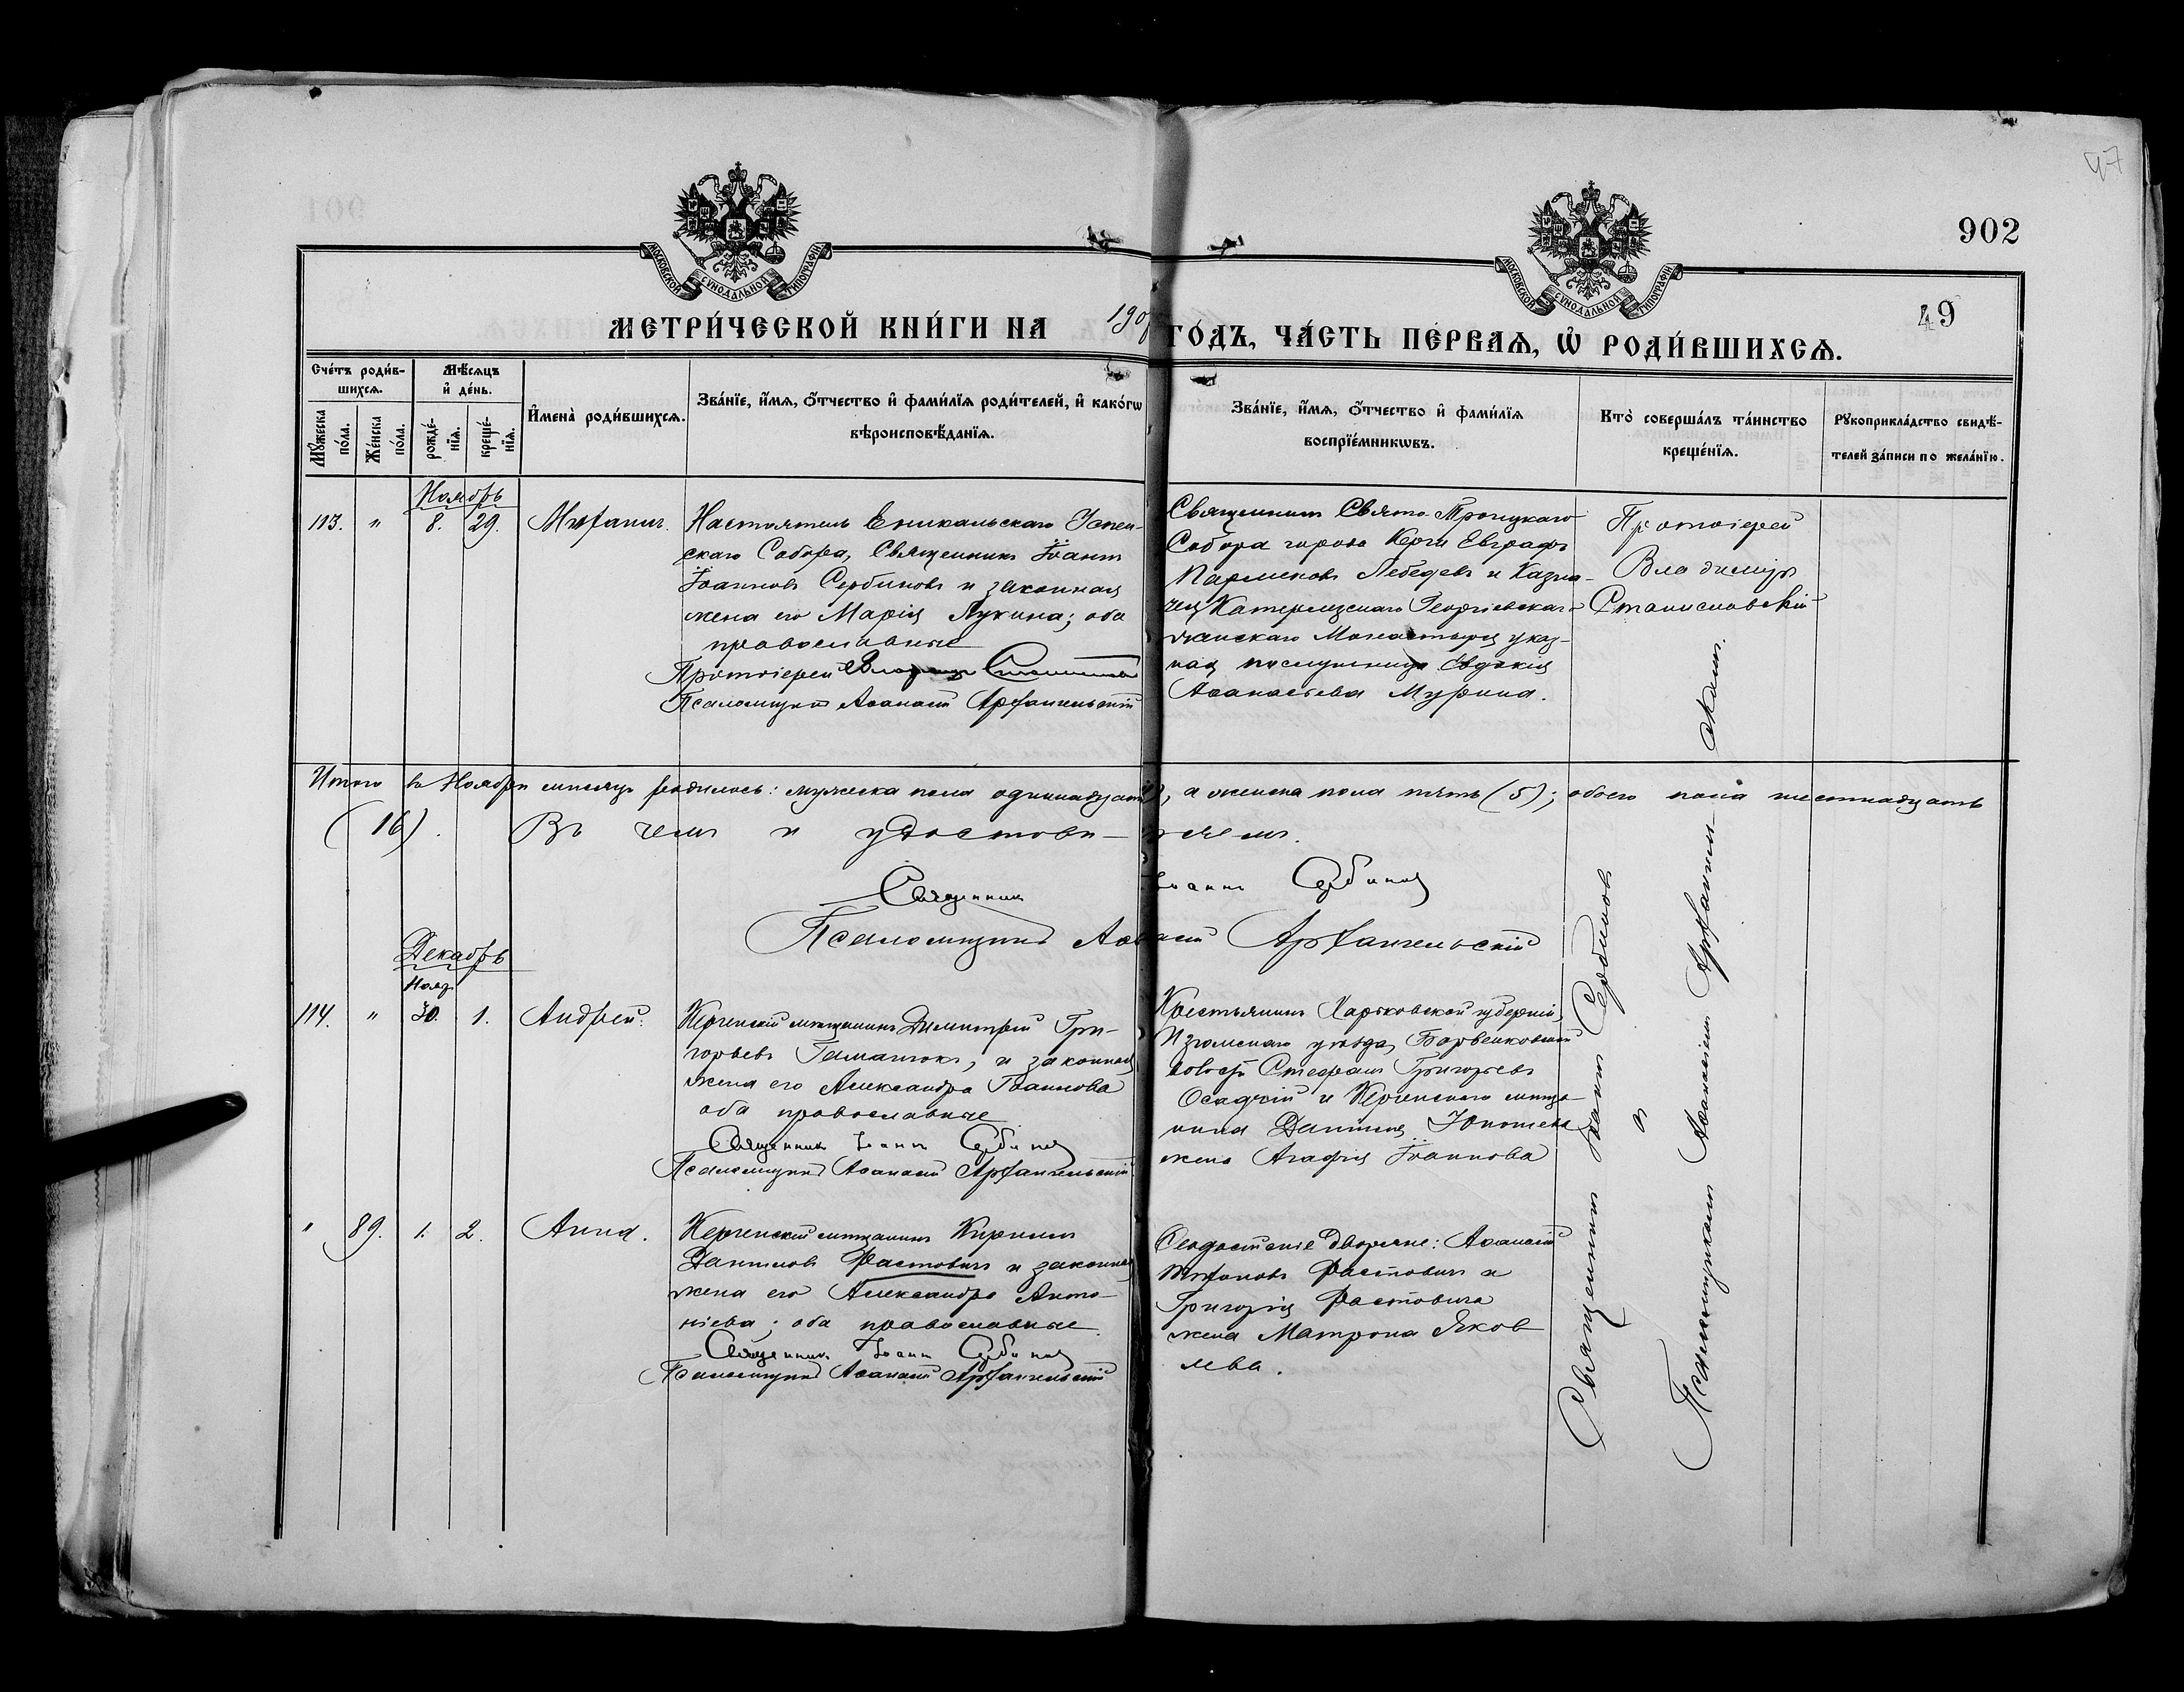 902
49
47
МОСКОВСКОЙ СУНОДАЛЬНОЙ ТИПОГРАФІИ
МОСКОВСКОЙ СУНОДАЛЬНОЙ ТИПОГРАФІИ
МЕТРИ́ЧЕСКОЙ КНИ́ГИ НА 190 ГО́ДЪ, ЧА́СТЬ ПЕ́РВАѦ, Ѡ҆ РОДИ́ВШИХСѦ.
Сче́тъ роди́в-
шихсѧ.
Мꙋ́жеска по́ла.
Же́нска по́ла.
Мѣ́сѧцъ
и҆ де́нь.
рожде́-
нїѧ.
креще́-
нїѧ.
И҆мена̀ роди́вшихсѧ.
Зва́нїе, и҆́мѧ, ѻ҆́тчество и҆ фами́лїѧ роди́телей, и҆ како́гѡ
вѣроисповѣ́данїѧ.
Зва́нїе, и҆́мѧ, ѻ҆́тчество и҆ фами́лїѧ
воспрїе́мникѡвъ.
Кто̀ соверша́лъ та́инство
креще́нїѧ.
Рꙋкоприкла́дство свидѣ́-
телей за́писи по жела́нїю.
Ноябрь
113. " 8. 29. Михаилъ.
Настоятель Еникальскаго Успен-
скаго Собора, Священникъ Іоаннъ
Іоанновъ Сербиновъ и законная
жена его Марія Лукина; оба
православные
Протоіерей Владиміръ
Псаломщикъ Аѳанасій Архангельскій
Священникъ Свято-Троицкаго
Собора города Керчи Евграфъ
Парменовъ Лебедевъ и Казна-
чея Катерлезскаго Георгіевскаго
женскаго Монастыря указ-
ная послушница Евдокія
Аѳанасьева Мурина.
Протоіерей
Владиміръ
Станиславскій
Итого въ Ноябрѣ мѣсяцѣ родилось: мужеска пола одиннадцать, а женска пола пять (5); обоего пола шестнадцать
(16). Въ чемъ и удостовѣряемъ.
Священникъ Іоаннъ Сербиновъ
Псаломщикъ Аѳанасій Архангельскій
Декабрь
Нояр.
114. " 30. 1. Андрей.
Керченскій мѣщанинъ Димитрій Гри-
горьевъ Гаманюкъ, и законная
жена его Александра Іоаннова
оба православные
Священникъ Іоаннъ Сербиновъ
Псаломщикъ Аѳанасій Архангельскій
Крестьянинъ Харьковской губерніи,
Изюмскаго уѣзда, Барвенковской
волости Стефанъ Григорьевъ
Осадчій и Керченскаго мѣща-
нина Даніила
жена Агафія Іоаннова
" 89. 1. 2. Анна.
Керченскій мѣщанинъ Кириллъ
Даніиловъ Фастовичъ и законная
жена его Александра Анто-
ніева; оба православные.
Священникъ Іоаннъ Сербиновъ
Псаломщикъ Аѳанасій Архангельскій
Ѳеодосійскіе дворяне: Аѳанасій
Фастовичъ и
Григорія Фастовича
жена Матрона Яков
лева.
Священникъ Іоаннъ Сербиновъ
и
Псаломщикомъ Аѳанасіемъ Архангель-
скимъ.